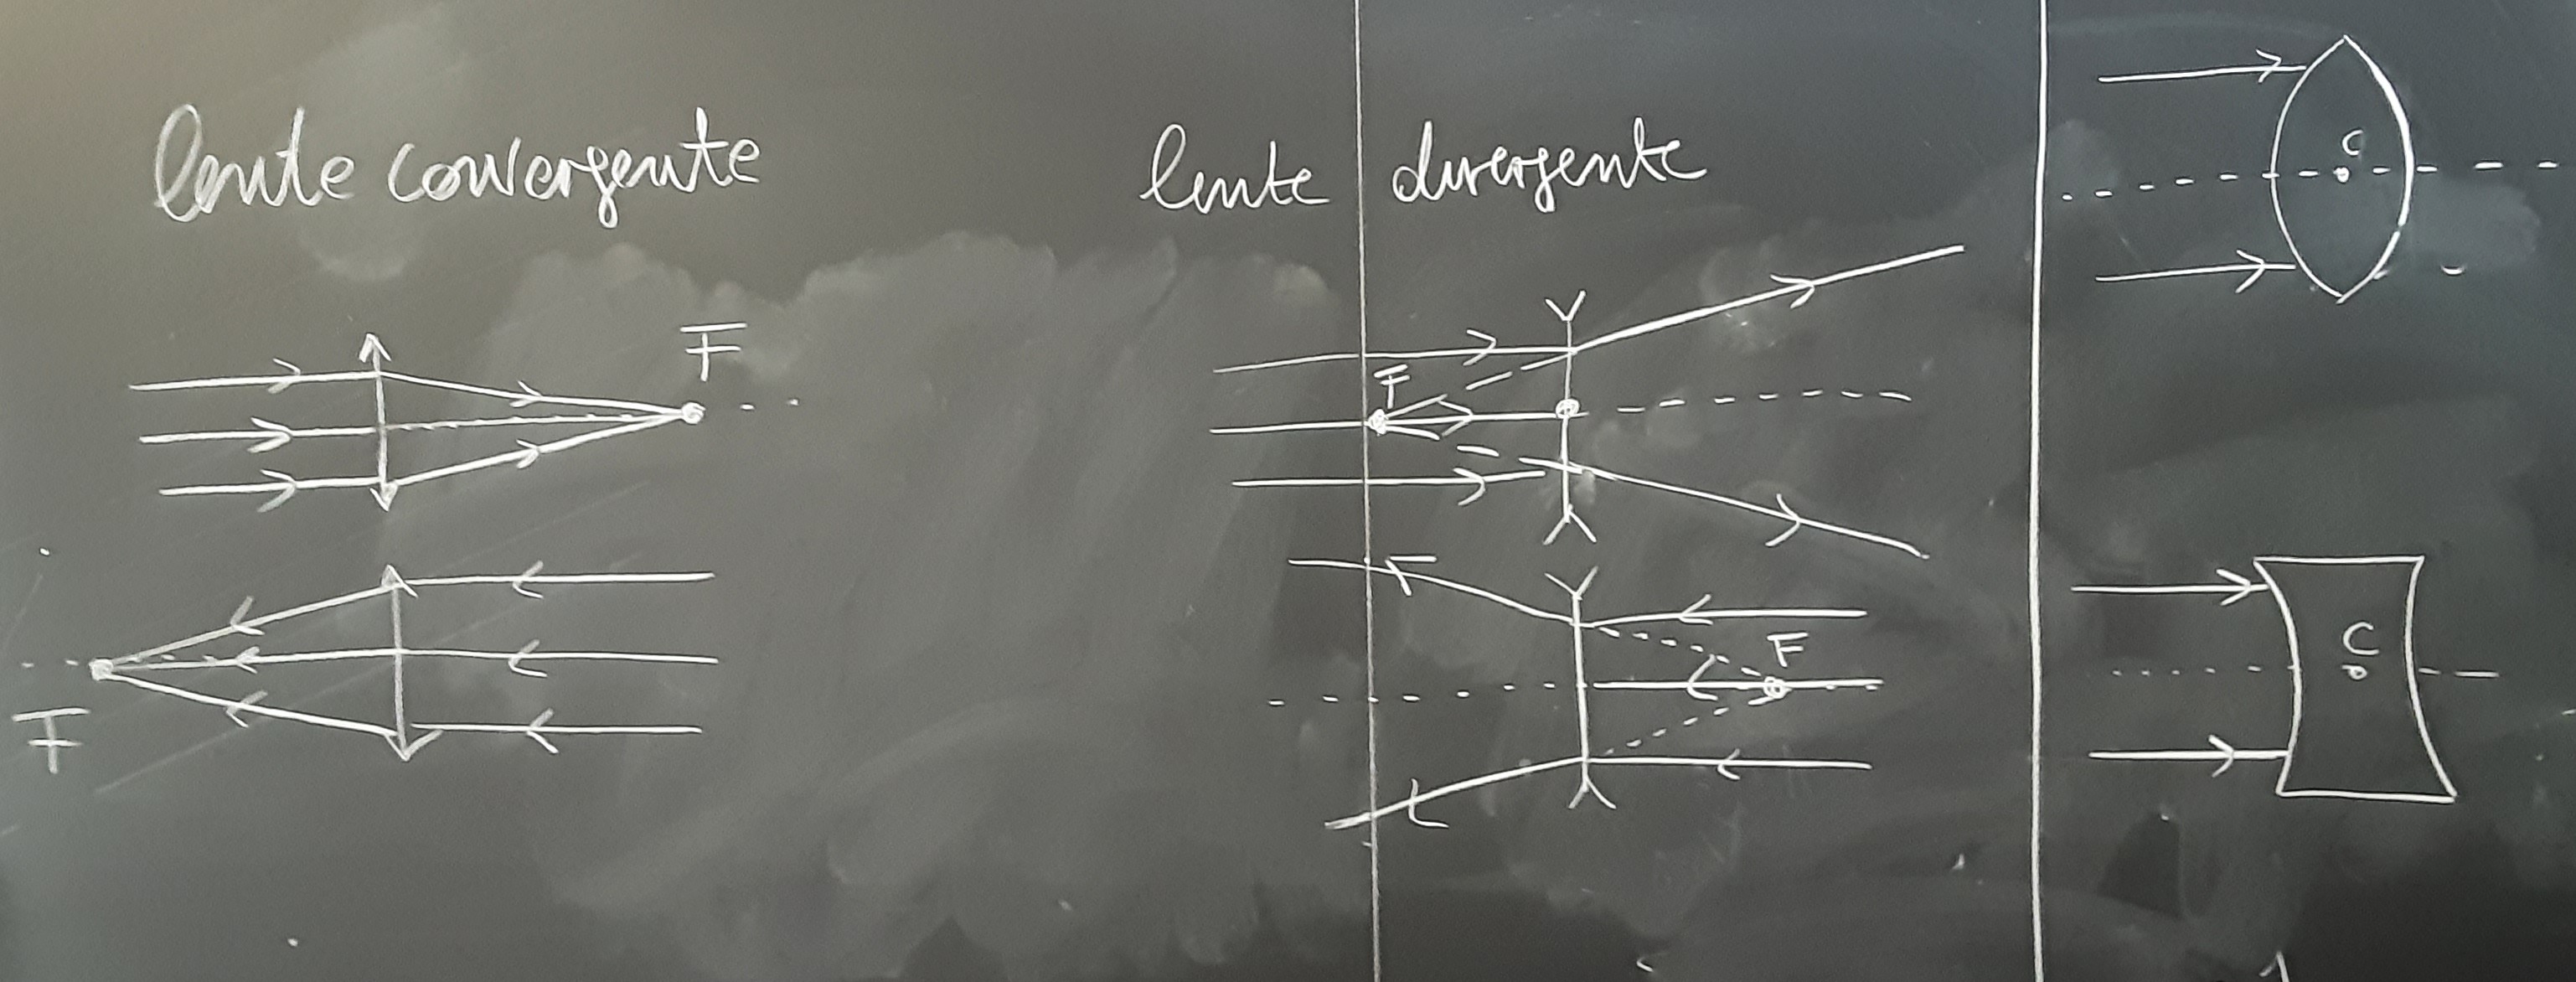 lente convergente
lente divergente
F
F
F
F
C
C